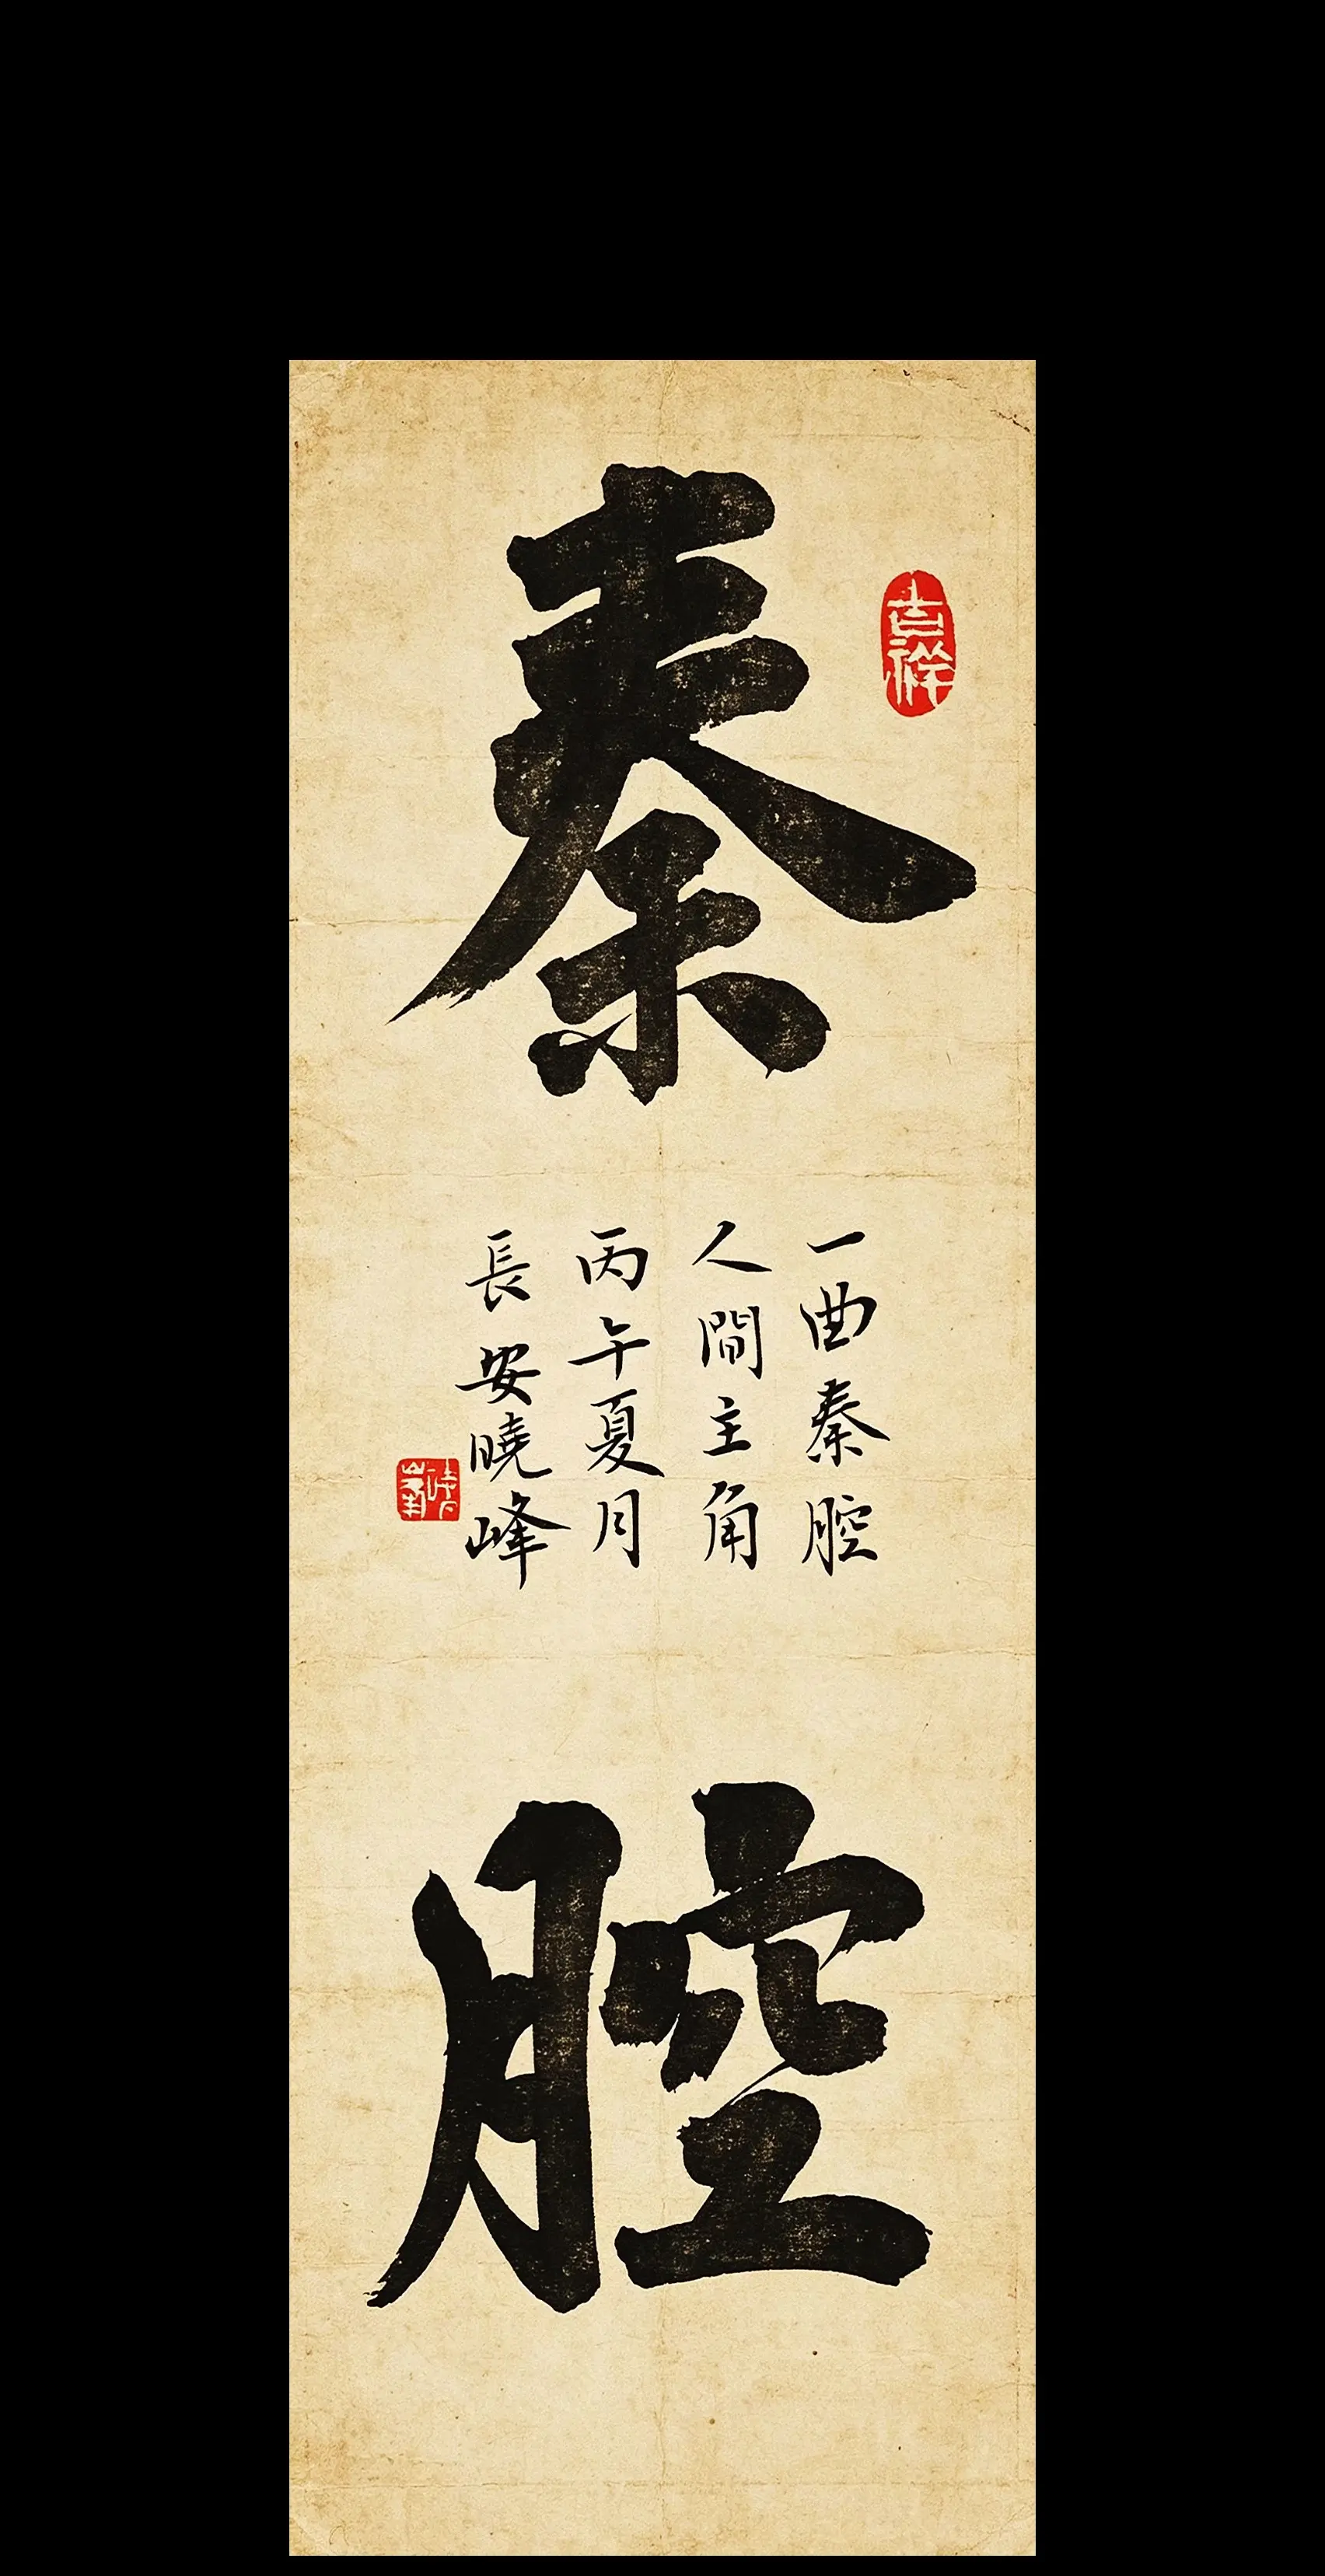 秦腔
吉祥
一曲秦腔
人間主角
丙午夏月
長安曉峰